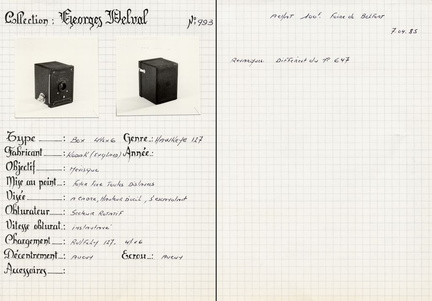 Collection : Georges Delval N° 993
Type : Box 4½x6 Genre : 127
Fabricant : Kodak (England) Année :
Objectif : Ménisque
Mise au point : Fixe Toutes Distances
Visée :
Obturateur : Secteur Rotatif
Vitesse obturat : instantané
Chargement : Rollfilm 127. 4½x6
Décentrement : Aucun Ecrou : Aucun
Accessoires :
Foire de Belfort
7.04.85
Remarque Different du N° 647